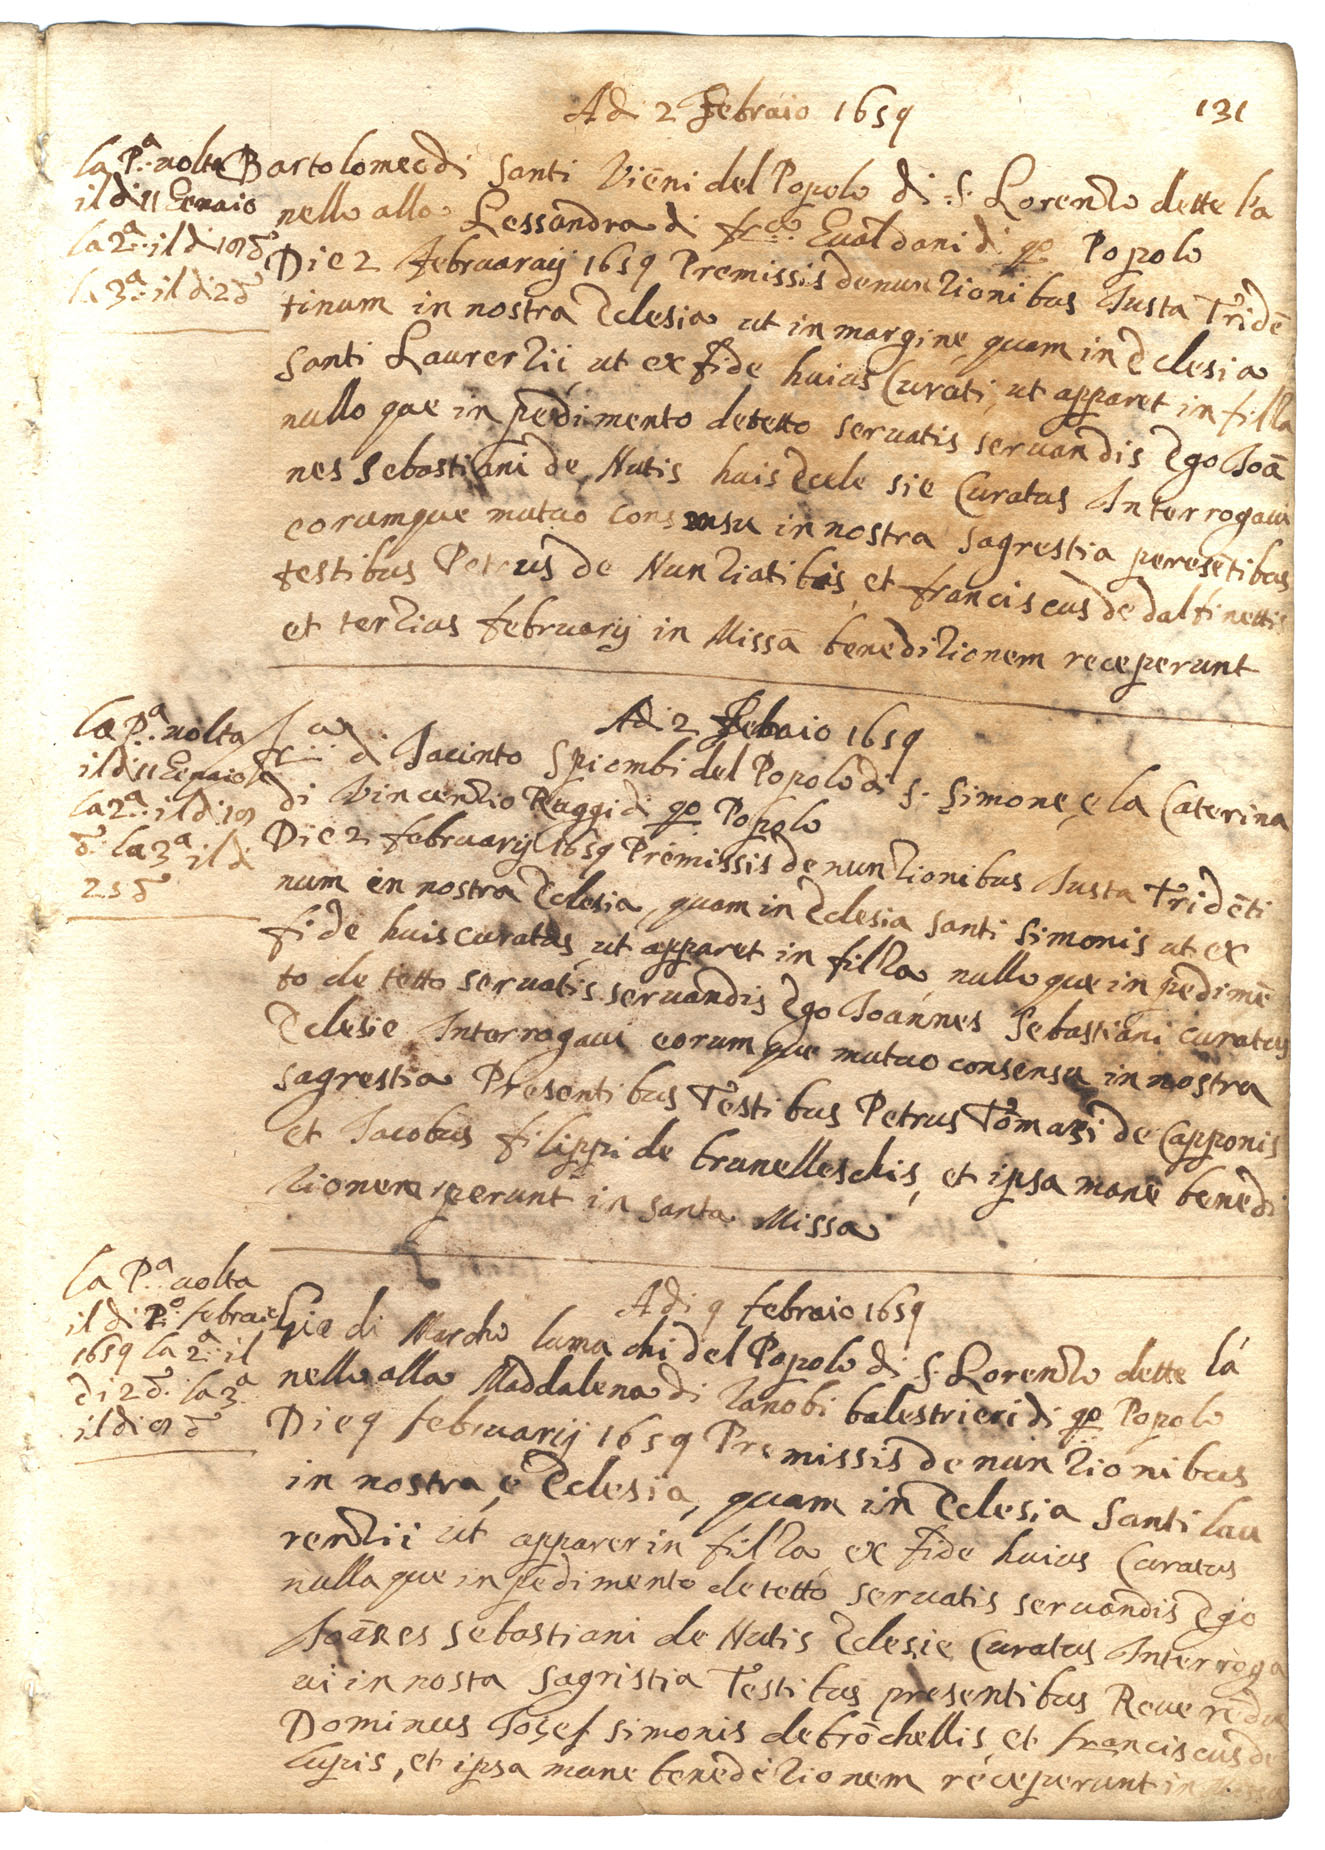 Adi 2 Febraio 1659
131
la P.ª uolta
il di 11 Genaio
la 2.ª il di 19 d.º
la 3.ª il di 2 d.º
Bartolomeo di Santi Viēni del Popolo di S. Lorenzo dette l'a
nello alla Lessandra di Fr.co Gualdani di qo Popolo
Die 2 februaraij 1659 Premissis denunzionibus Iusta Tridē
tinum in nostra Eclesia ut in margine, quam in Eclesia
Santi Laurenzii, ut ex fide huius Curati, ut apparet in filza
nullo que in pedimento detetto seruatis seruandis Ego Ioā
nes Sebastiani de Nutis huis Ecle sie Curatus Interrogaui
eorumque mutuo consensu in nostra sagrestia peresētibus
testibus Petrus de Nunziatibus, et franciscus de dalfinettis
et terzius februarij in Missā benedizionem receperunt
la P.ª uolta
il di 11 Genaio
la 2.ª il di 19
d.º la 3.ª il di
25 d.º
Adi 2 Febraio 1659
Fr.co di Iacinto Spiombi del Popolo di S. Simone, e la Caterina
di Vincenzio Ruggi di qo Popolo
Die 2 februarij 1659 Premissis denunzionibus Iusta Tridēti
num in nostra Eclesia, quam in Eclesia Santi Simonis ut ex
fide huis curatus, ut apparet in filza, nullo que in pedimē
to de tetto seruatis seruandis Ego Ioannes Sebastiani curatus
Eclesie Interrogaui eorum que mutuo consensu in nostra
sagrestia Presentibus Testibus Petrus Tōmasi de Capponis
et Iacobus filippi de brunelleschis, et ipsa mane benedi
zionem perunt in santa Missa
la P.ª uolta
il di P.º febraio
1659 la 2.ª il
di 2 d.º la 3.ª
il di 9 d.º
Adi 9 febraio 1659
Gia di Marcho lumachi del Popolo di S. Lorenzo dette lá
nello alla Maddalena di Zanobi balestrieri di qo Popolo
Die 9 februarij 1659 Premissis denunzionibus
in nostra, e Eclesia, quam in Eclesia Santi Lau
renzii ut apparer in filza, ex fide huius Curatus
nulla que in pedimento detetto seruatis seruandis Ego
Ioānes Sebastiani de Nutis Eclesie Curatus Interroga
ui in nosta sagristia Testibus presentibus Reuerēdu
Dominus Iosef simonis de brōchellis, et franciscus de
lupis, et ipsa mane benedizionem receperunt in Missa